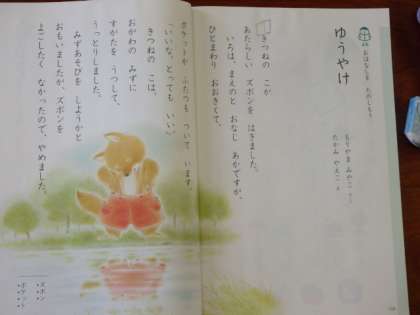 おはなしを たのしもう
ゆうやけ
もりやま みやこ さく
たかみ やえこ え
きつねの こが
あたらしい ズボンを はきました。
いろは、まえのと おなじ あかですが、
ひとまわり おおきくて、
ポケットが ふたつも ついて います。
「いいな。とっても いい。」
きつねの こは、
おがわの みずに
すがたを うつして、
うっとりしました。
みずあそびを しようかと
おもいましたが、ズボンを
よごしたく なかったので、やめました。
ズボン
ポケット